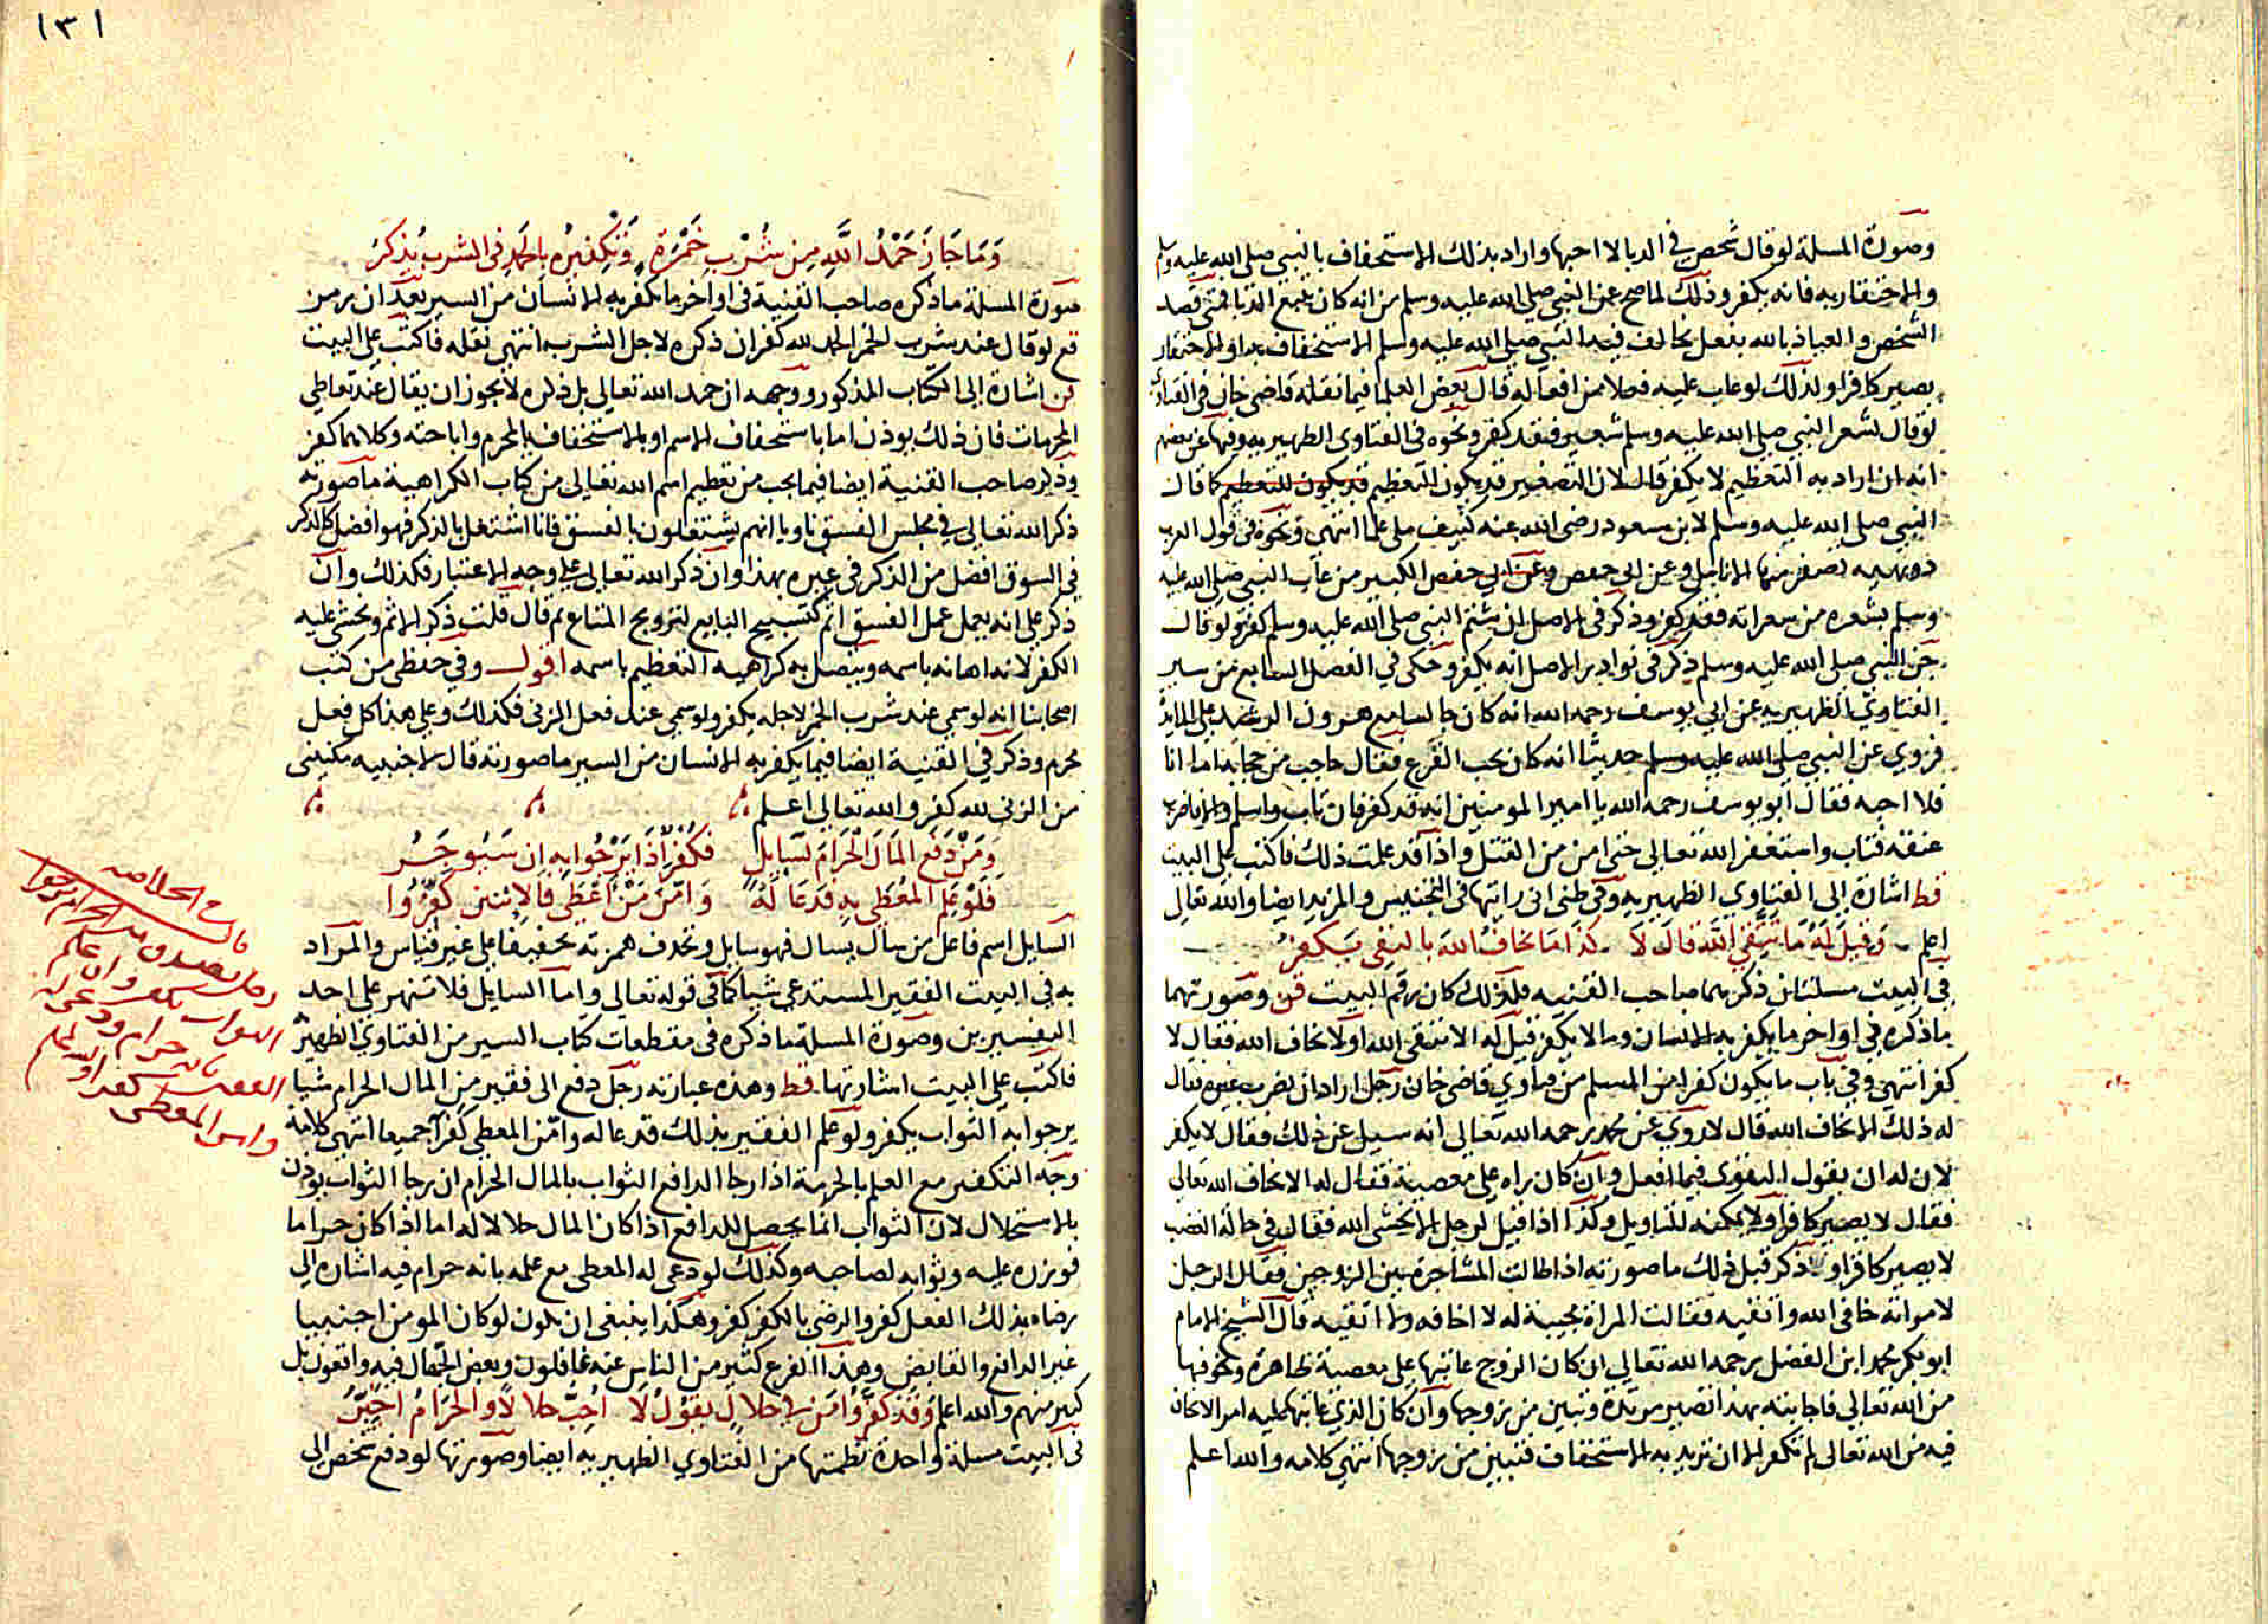 وصورة المسلة لو قال شخص في الدبا لا احبها واراد بذلك الاستخفاف بالنبي صلى الله عليه وسلم
والاحتقار به فانه يكفر وذلك لما صح عن النبي صلى الله عليه وسلم من انه كان يتبع الدبا فمتى قصد
الشخص والعياذ بالله بفعل يخالف فيه النبي صلى الله عليه وسلم الاستخفاف به او الاحتقار
يصير كافرا ولذلك لو عاب عليه فعلا من افعاله قال بعض العلما فيما نقله قاضي خان في الفتاوى
لو قال لشعر النبي صلى الله عليه وسلم شعير فقد كفر ونحوه في الفتاوى الظهيريه وفيها عن بعضهم
انه ان اراد به التعظيم لا يكفر قال لان التصغير قد يكون للتعظيم قد يكون للتعظيم كما قال
النبي صلى الله عليه وسلم لابن مسعود رضى الله عنه كنيف ملى علما انتهى ونحوه في قول العرب
دويهيه تصفر منها الانامل وعن ابي حفص وعن ابي حفص الكبير من عاب النبي صلى الله عليه
وسلم بشعره من شعراته فقد كفر وذكر في الاصل ان شتم النبي صلى الله عليه وسلم كفر ولو قال
جن النبي صلى الله عليه وسلم ذكر في نوادر الاصل انه يكفر وحكى في الفصل السابع من سير
الفتاوي الظهيريه عن ابي يوسف رحمه الله انه كان جالسا مع هرون الرشيد على المايدة
فروي عن النبي صلى الله عليه وسلم حديثا انه كان يحب القرع فقال حاجب من حجابه اما انا
فلا احبه فقال ابو يوسف رحمه الله يا امير المومنين انه قد كفر فان تاب واسلم والا فاضرب
عنقه فتاب واستغفر الله تعالى حتى امن من القتل واذا قد علمت ذلك فاكتب على البيت
قط اشارة الى الفتاوي الظهيريه وفي ظني اني رايتها في التجنيس والمزيد ايضا والله تعالى
اعلم وقيل له ما تتقي الله قال لا كذا ما تخاف الله بالنفي يكفر
في البيت مسلتان ذكرهما صاحب القنيه فلذلك كان رقم البيت قن وصورتهما
ما ذكره في اواخر ما يكفر به الانسان وما لا يكفر قيل له الا تتقى الله او لا تخاف الله فقال لا
كفر انتهى وفي باب ما يكون كفرا من المسلم من فتاوي قاضي خان رجل اراد ان يضرب غيره فقال
له ذلك الا تخاف الله قال لا روي عن محمد رحمه الله تعالى انه سيل عن ذلك فقال لا يكفر
لان له ان يقول التقوى فيما افعل وان كان راه على معصية فقال له الا تخاف الله تعالى
فقال لا يصير كافرا ولا يمكنه للتاويل وكذا اذا قيل لرجل الا تخشى الله فقال في حالة الغضب
لا يصير كافرا وذكر قبل ذلك ما صورته اذا طالت المشاجرة بين الزوجين فقال الرجل
لامراته خافي الله واتقيه فقالت المراة مجيبة له لا اخافه ولا اتقيه قال الشيخ الامام
ابو بكر محمد ابن الفضل رحمه الله تعالى ان كان الزوج عاتبها على معصية ظاهرة وخوفها
من الله تعالى فاجابته بهذا تصير مرتدة وتبين من زوجها وان كان الذي عاتبها عليه امر لا تخاف
فيه من الله تعالى لم تكفر الا ان تريد به الاستخفاف فتبين من زوجها انتهى كلامه والله اعلم
١٣١
وَمَا جَازَ حَمْدُ اللَّهِ مِن شُرْبِ خَمْرَةٍ وَتَكْفِيرُه بالحَمدِ في الشرب يُذكرُ
صورة المسلة ما ذكره صاحب القنية في اواخر ما يكفر به الانسان من السير بعد ان رمز
قع لو قال عند شرب الخمر الحمد لله كفر ان ذكره لاجل الشرب انتهى نقله فاكتب على البيت
قن اشارة الى الكتاب المذكور ووجهه ان حمد الله تعالى بل ذكره لا يجوز ان يقال عند تعاطي
المحرمات فان ذلك يوذن اما باستخفاف الاسم او بالاستخفاف بالمحرم واباحته وكلاهما كفر
وذكر صاحب القنية ايضا فيما يجب من تعظيم اسم الله تعالى من كتاب الكراهية ما صورته
ذكر الله تعالى في مجلس الفسق ناويا انهم يشتغلون بالفسق فانا اشتغل بالذكر فهو افضل كالذكر
في السوق افضل من الذكر في غيره بهذا وان ذكر الله تعالى على وجه الاعتبار فكذلك وان
ذكر على انه يعمل عمل الفسق اثم كتسبيح البايع لترويج المتاع ثم قال قلت ذكر الاثم ويخشى عليه
الكفر لانه اهانه باسمه ويتصل به كراهيه التعظيم باسمه اقول وفي حفظي من كتب
اصحابنا انه لو سمي عند شرب الخمر لاجله يكفر ولو سمي عند فعل الزنى فكذلك وعلى هذا كل فعل
محرم وذكر في القنية ايضا فيما يكفر به الانسان من السير ما صورته قال لاجنبيه مكنيني
من الزنى لله كفر والله تعالى اعلم
وَمَنْ دَفَعَ المَالَ الحَرَامَ لسَايِلٍ فكفِّر اذا يَرْجُوا به ان سَيُوجَرُ
فَلَوْ عَلِمَ المُعْطَى بهِ فَدَعَا لَهُ وَامَّنَ مَنْ اعْطَى فَالاثنين كَفَّرُوا
السايل اسم فاعل من سال يسال فهو سايل وتحذف همزته تخفيفا على غير قياس والمراد
به في البيت الفقير المستدعي شيا كما في قوله تعالى واما السايل فلا تنهر على احد
التفسيرين وصورة المسلة ما ذكره في مقطعات كتاب السير من الفتاوي الظهيرية
فاكتب على البيت اشارتها قظ وهذه عبارته رجل دفع الى فقير من المال الحرام شيا
يرجوا به الثواب يكفر ولو علم الفقير بذلك فدعا له وامّن المعطي كفرا جميعا انتهى كلامه
وجه التكفير مع العلم بالحرمة اذا رجا الدافع الثواب بالمال الحرام ان رجا الثواب يوذن
بالاستحلال لان الثواب انما يحصل للدافع اذا كان المال حلالا له اما اذا كان حراما
فوزره عليه وثوابه لصاحبه وكذلك لو دعى له المعطى مع علمه بانه حرام فيه اشاره الى
رضاه بذلك الفعل كفر والرضى بالكفر كفر وهكذا ينبغى ان يكون لو كان المومن اجنبيا
غير الدافع والقابض وهذا الفرع كثير من الناس عنه غافلون وبعض الجهال فيه واقعون بل
كبير منهم والله اعلم وَقَدْ كفَّرُوا مَن في حلالٍ يَقولُ لا اُحِبُّ حلالاً وَالحَرَامُ اُخَيَّرُ
في البيت مسلة واحدة نظمتها من الفتاوي الظهيريه ايضا وصورتها لو دفع شخص الى
الخلاصه
رجل تصدق من الحرام يرجوا
الثواب يكفر وان علم
الفقير بانه حرام ودعى له
وامن المعطى كفرا والله اعلم